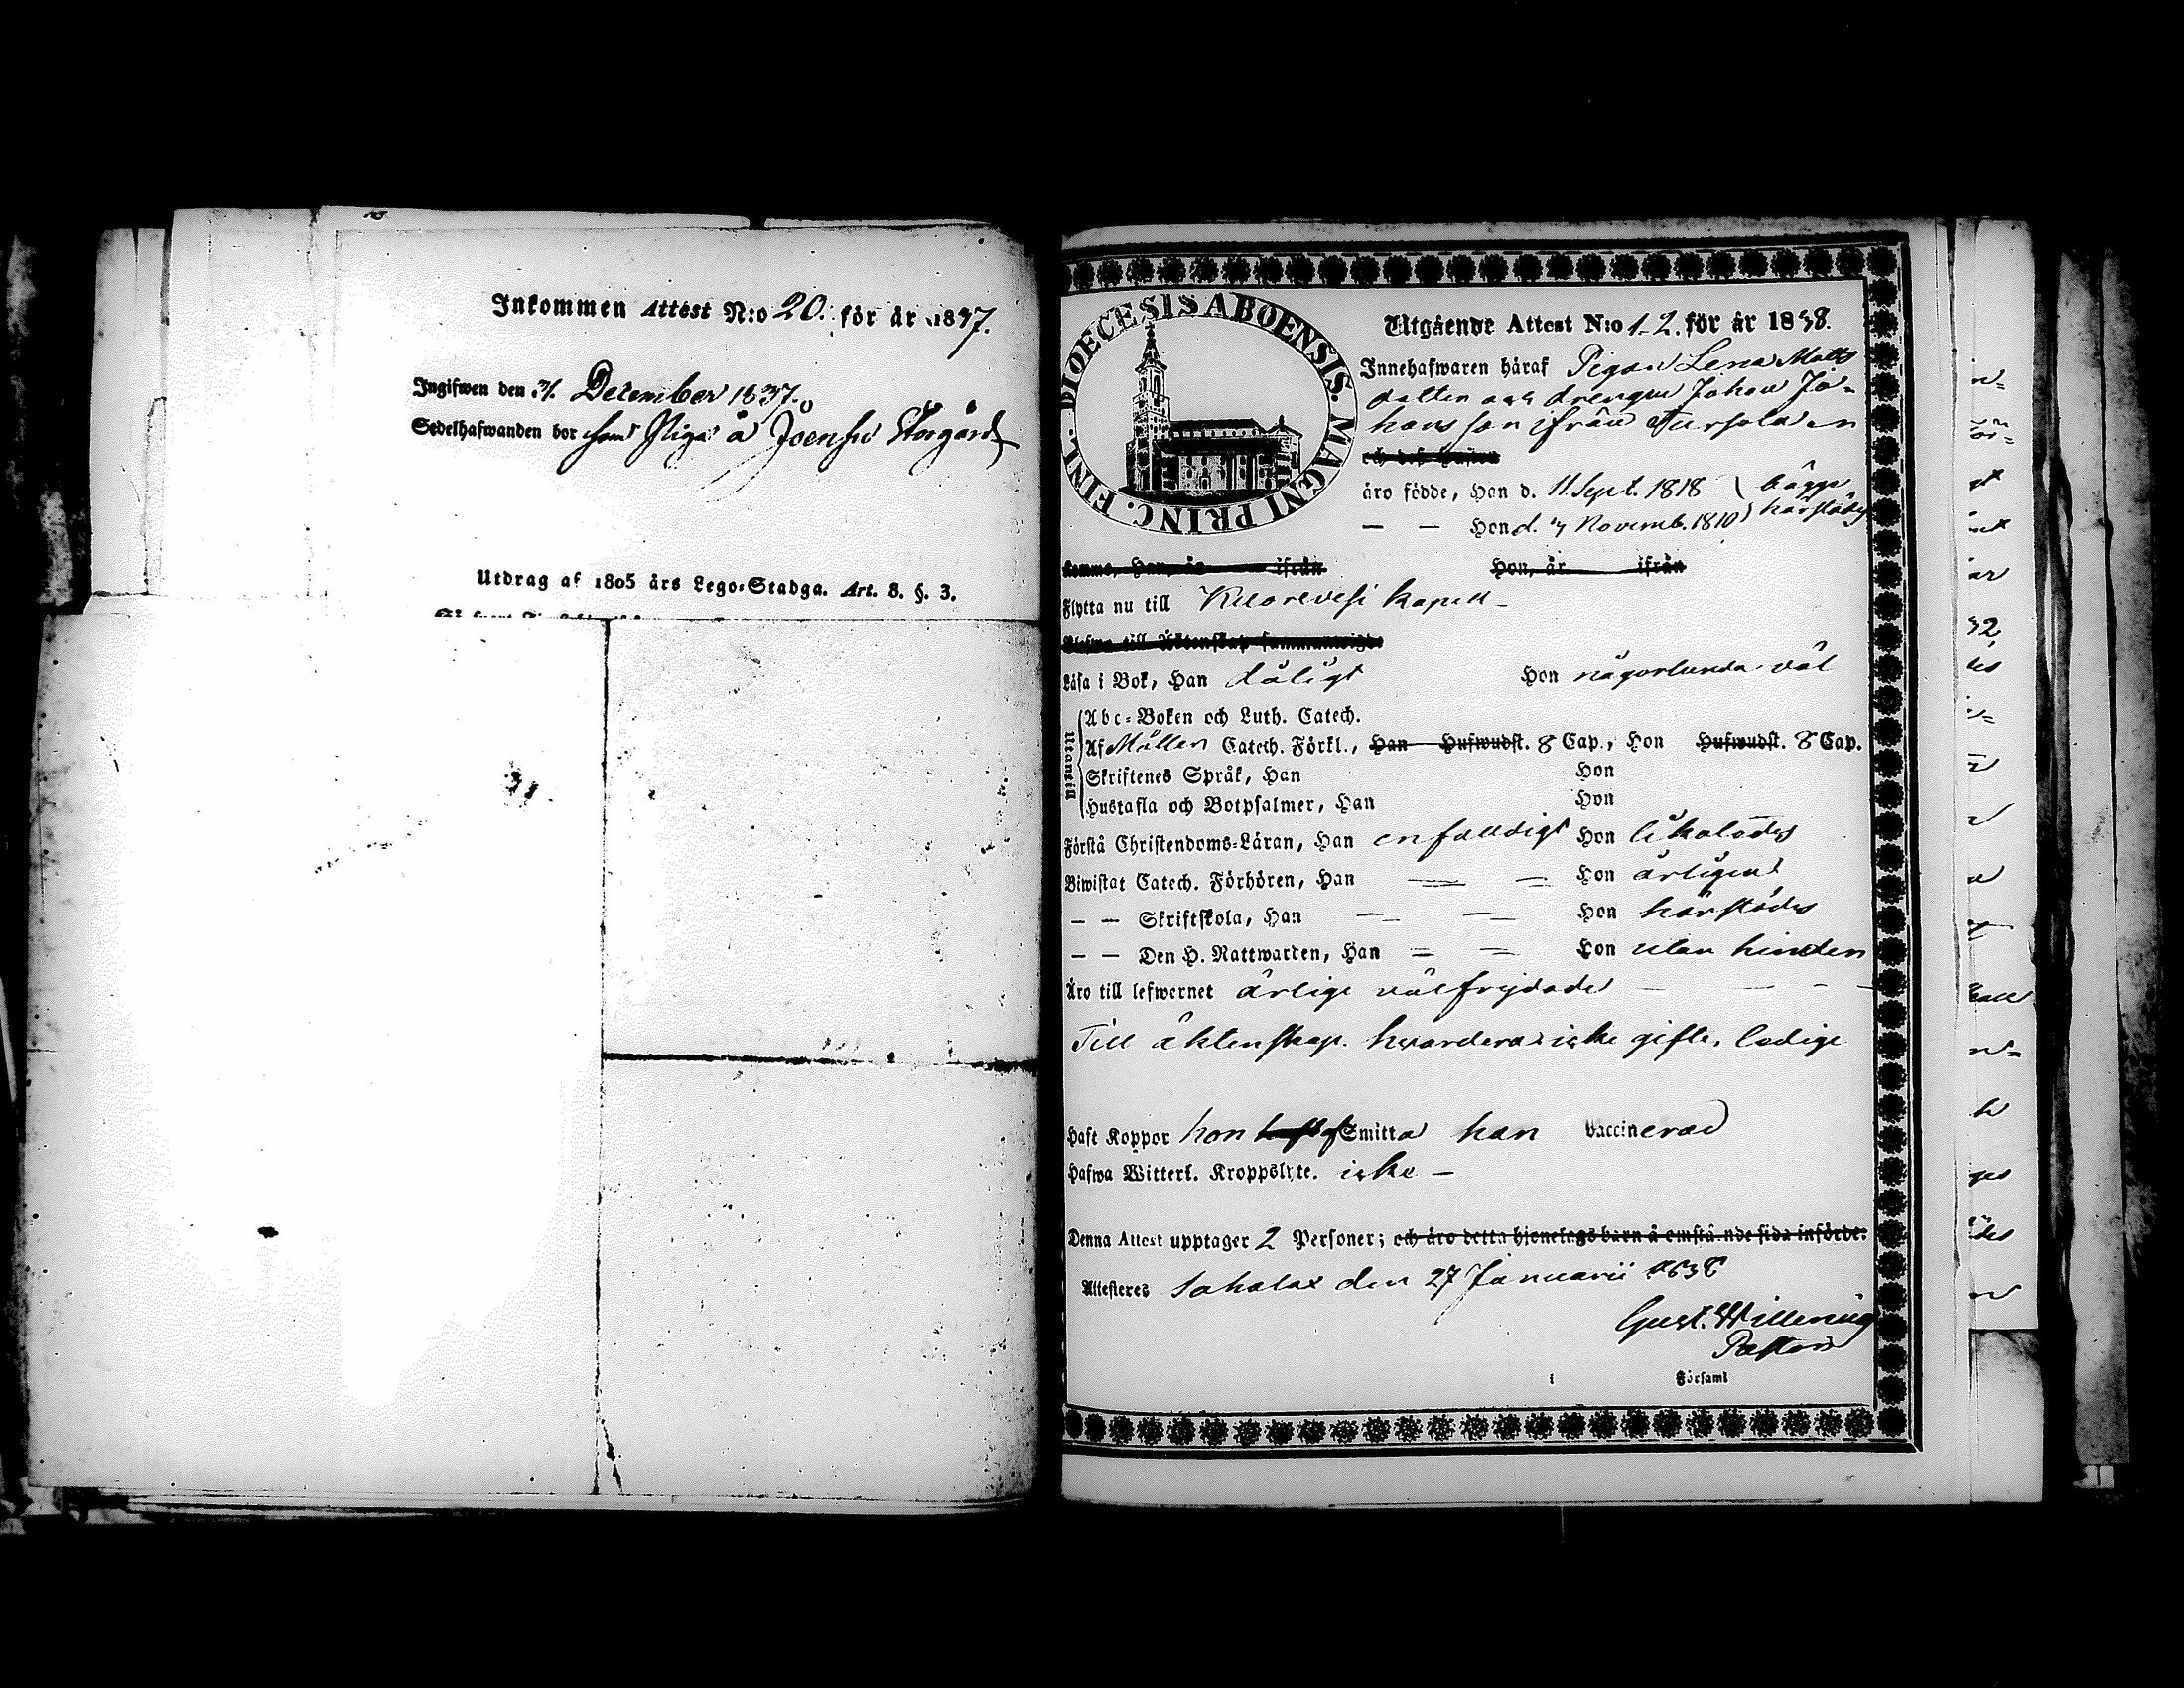 Inkommen Attest N:o 20. för år 1837.
Ingifwen den 31. December 1837.
Sedelhafwanden bor som Piga å Joensu Storgård
Utdrag af 1805 års Lego-Stadga. Art. 8. §. 3.
DIOECESIS ABOENSIS. MAGNI PRINC. FINL.
Utgående Attest N:o 1-2. för år 1838.
Innehafwaren häraf Pigan Lena Matts
dotter och drengen Johan Jo-
hans son ifrån
och dess hustru
äro födde, Han d. 11 Sept. 1818 } bägge
— — Hon d. 7 Novemb. 1810 } härstädes
komma, Han, år ifrån Hon, år ifrån
Flytta nu till Kuorevesi kapell -
till Äktenskap sammanwigde
Läsa i Bok, Han dåligt Hon någorlunda väl
Utantill
Abc-Boken och Luth. Catech.
Af Möllers Catech. Förkl., Han Hufwudst. 8 Cap., Hon Hufwudst. 8 Cap.
Skriftenes Språk, Han Hon
Hustafla och Botpsalmer, Han Hon
Förstå Christendoms-Läran, Han enfaldigt Hon likaledes
Biwistat Catech. Förhören, Han — — Hon årligen
— — Skriftskola, Han — — Hon härstädes
— — Den H. Nattwarden, Han — — Hon utan hinder
Äro till lefwernet ärlige välfrejdade — — — —
Till äktenskap hvardera icke gifte, ledige
Haft Koppor hon Smitta han Vaccinerad
Hafwa Witterl. Kroppslyte. icke —
Denna Attest upptager 2 Personer; och äro detta hjonelags barn å omstående sida införde.
Attesteres Sahalax den 27 Januarii 1838
Gust. Willenius
Pastor
i Församl